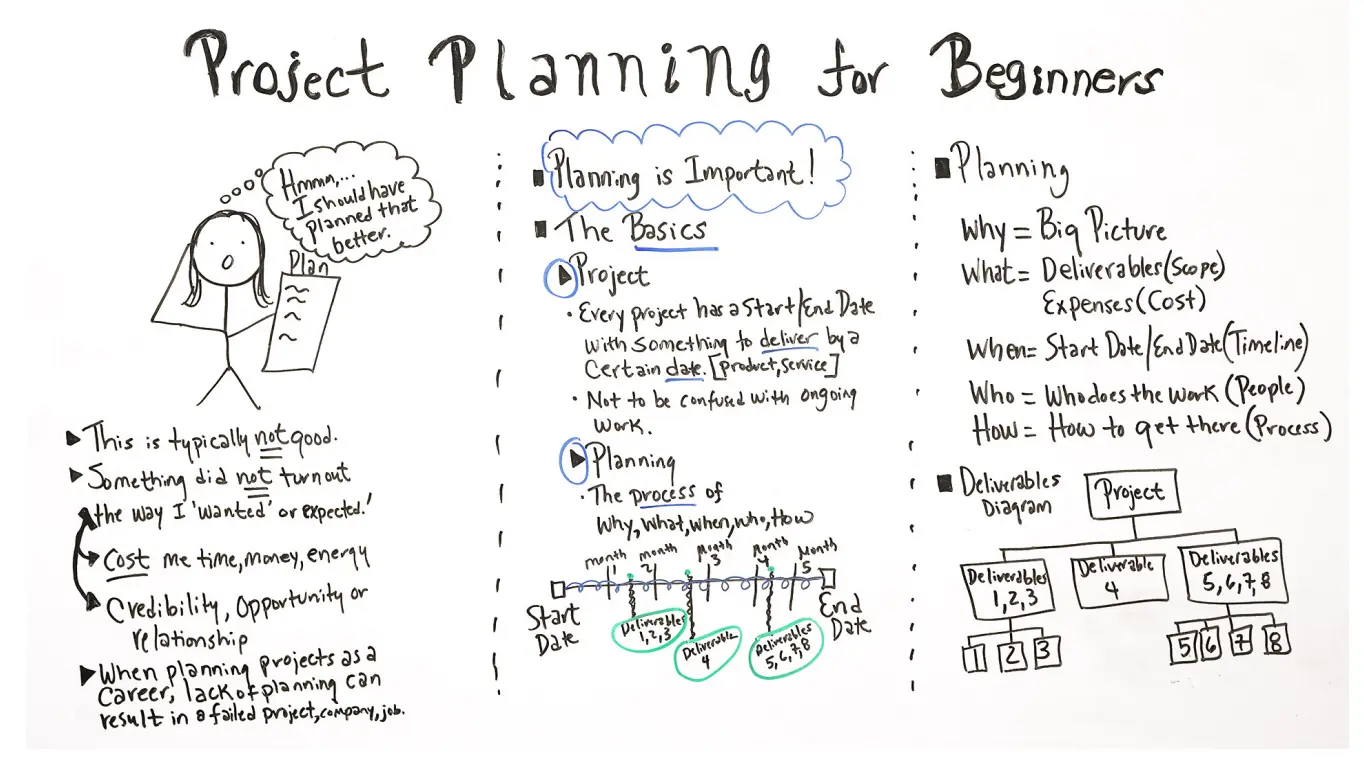 Project Planning for Beginners
Hmmm,...
I should have
planned that
better.
Plan
▶ This is typically not good.
▶ Something did not turnout
the way I 'wanted' or expected.'
Cost me time, money, energy
Credibility, Opportunity or
relationship
▶ When planning projects as a
career, lack of planning can
result in a failed project, company, job.
■ Planning is Important!
■ The Basics
▶ Project
• Every project has a Start/End Date
with something to deliver by a
certain date. [Product, Service]
• Not to be confused with ongoing
work.
▶ Planning
• The process of
Why, What, when, who, How
month 1
month 2
Month 3
Month 4
Month 5
Start
Date
End
Date
Deliverables
1,2,3
Deliverable
4
Deliverables
5,6,7,8
■ Planning
Why = Big Picture
What = Deliverables (Scope)
Expenses (Cost)
When = Start Date/End Date (Timeline)
Who = Who does the work (People)
How = How to get there (Process)
■ Deliverables
Diagram
Project
Deliverables
1,2,3
Deliverable
4
Deliverables
5,6,7,8
1 2 3
5 6 7 8